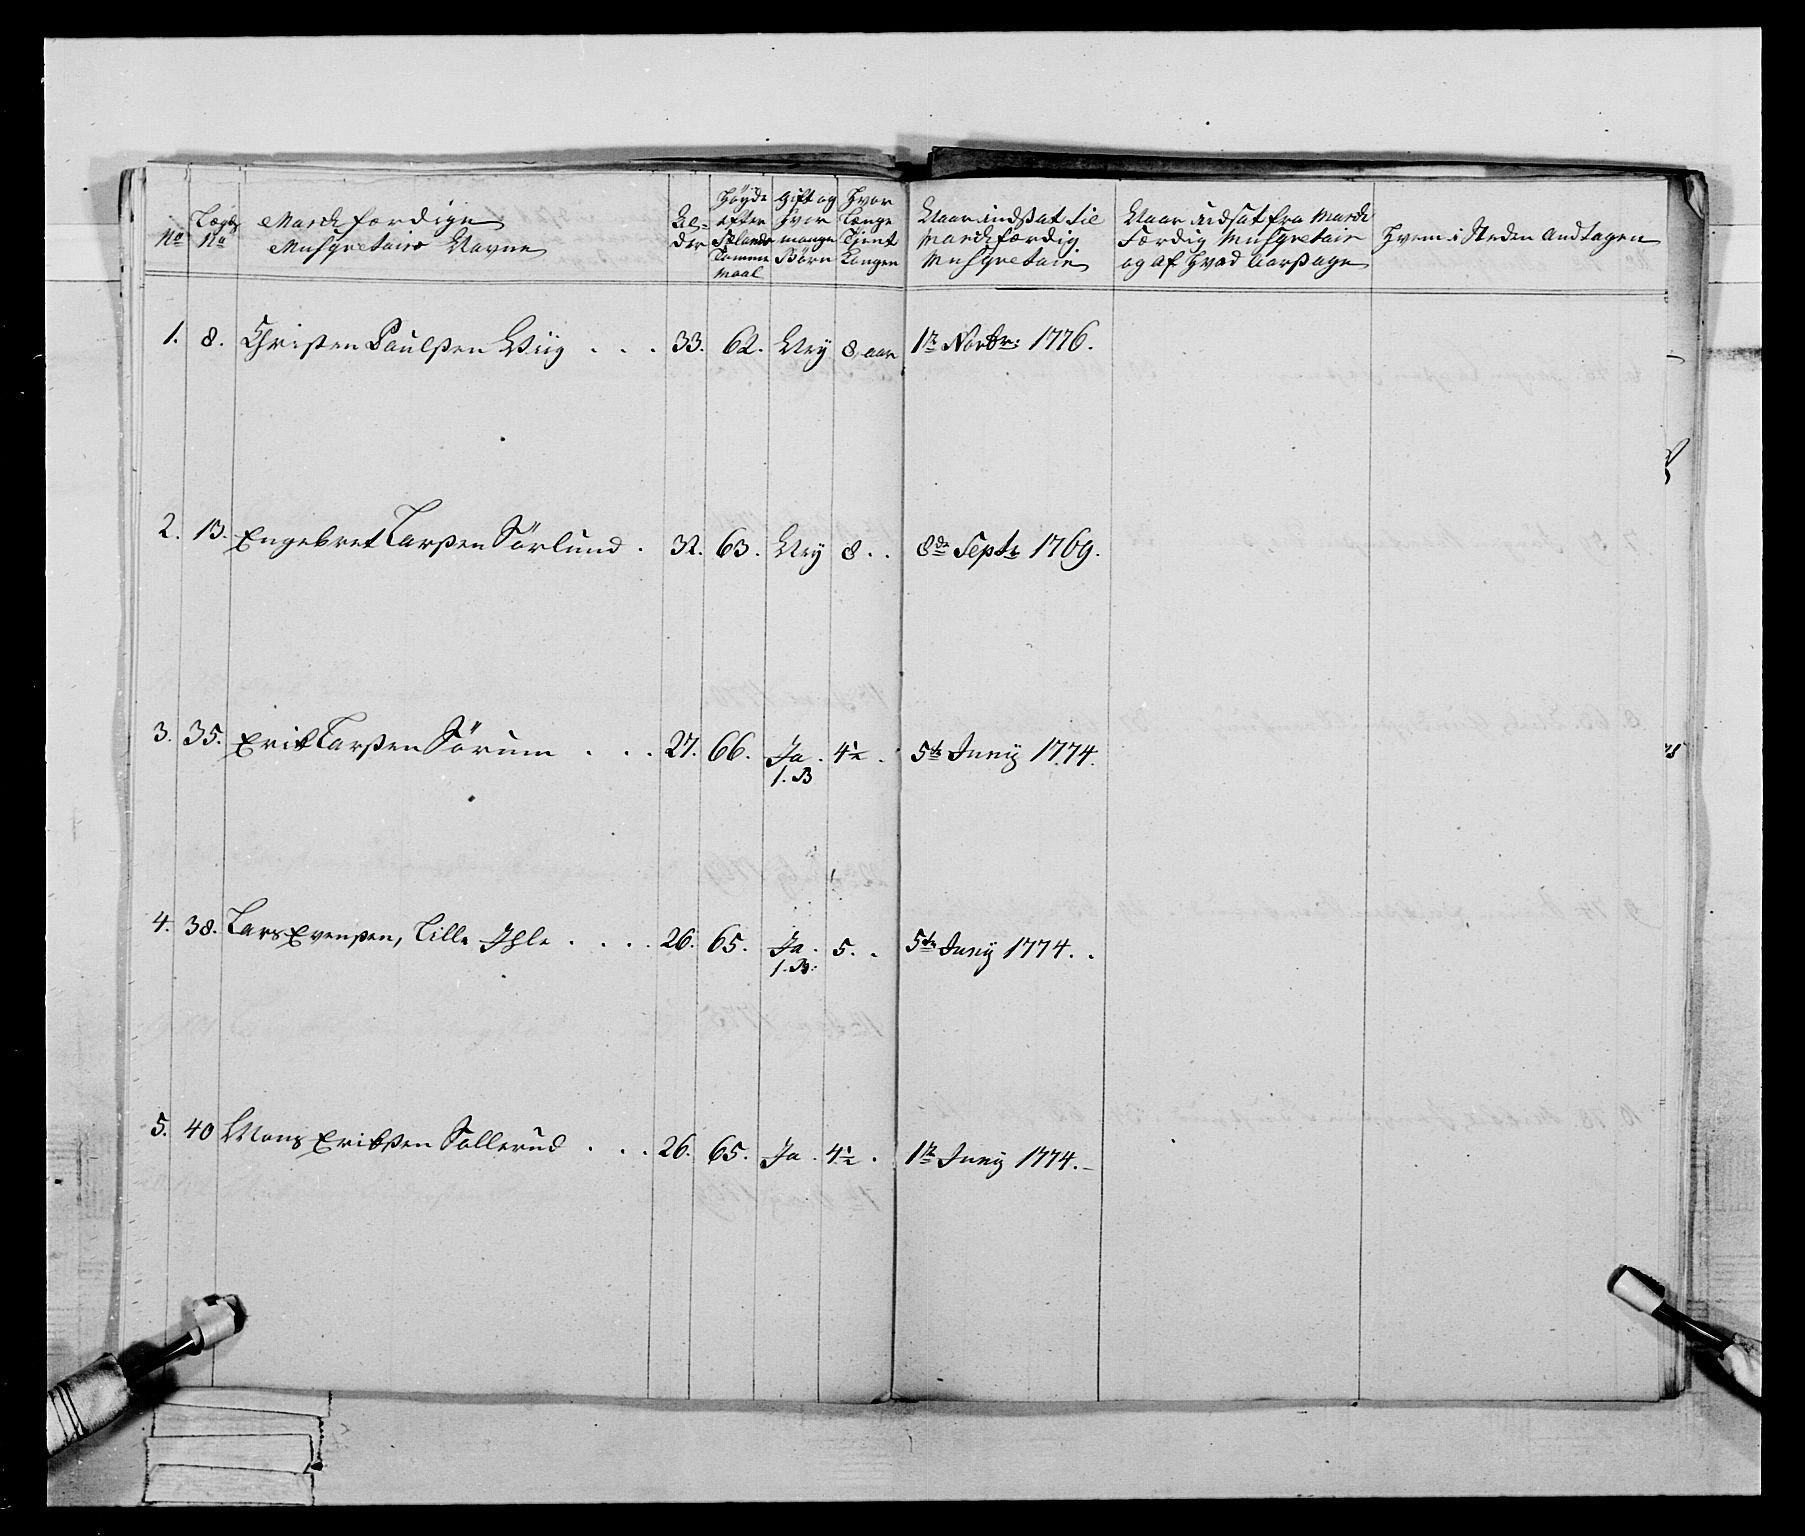 No
Lægds No
Marchfærdige Musqvetairs Navne
Alder
Høyde efter Sælands Tomme Maal
Gift og Hvor mange Børn
Hvor Længe Tjent Kongen
Naar indsat til Marchfærdig Musqvetair
Naar udsat fra March Færdig Musqvetair og af Hvad Aarsage
Hvem i Steden Andtagen
1. 8. Christen Paulsen Wiig . . . 33. 62. Ney 8 aar 1te Novbr: 1776.
2. 13. Engebret Larsen Sørlund . 32. 63. Ney 8 . . 8de Septr 1769.
3. 35. Erik Larsen Sørum . . . 27. 66. Ja . 4½ . 5te Junij 1774.
1. B
4. 38. Lars Evensen, Lille Ihle . . . . 26. 65. Ja . 5 . . 5te Junij 1774. .
1. B:
5. 40 Mons Eriksen Sollerud . . . 26. 65. Ja . 4½ . 1te Junij 1774. –